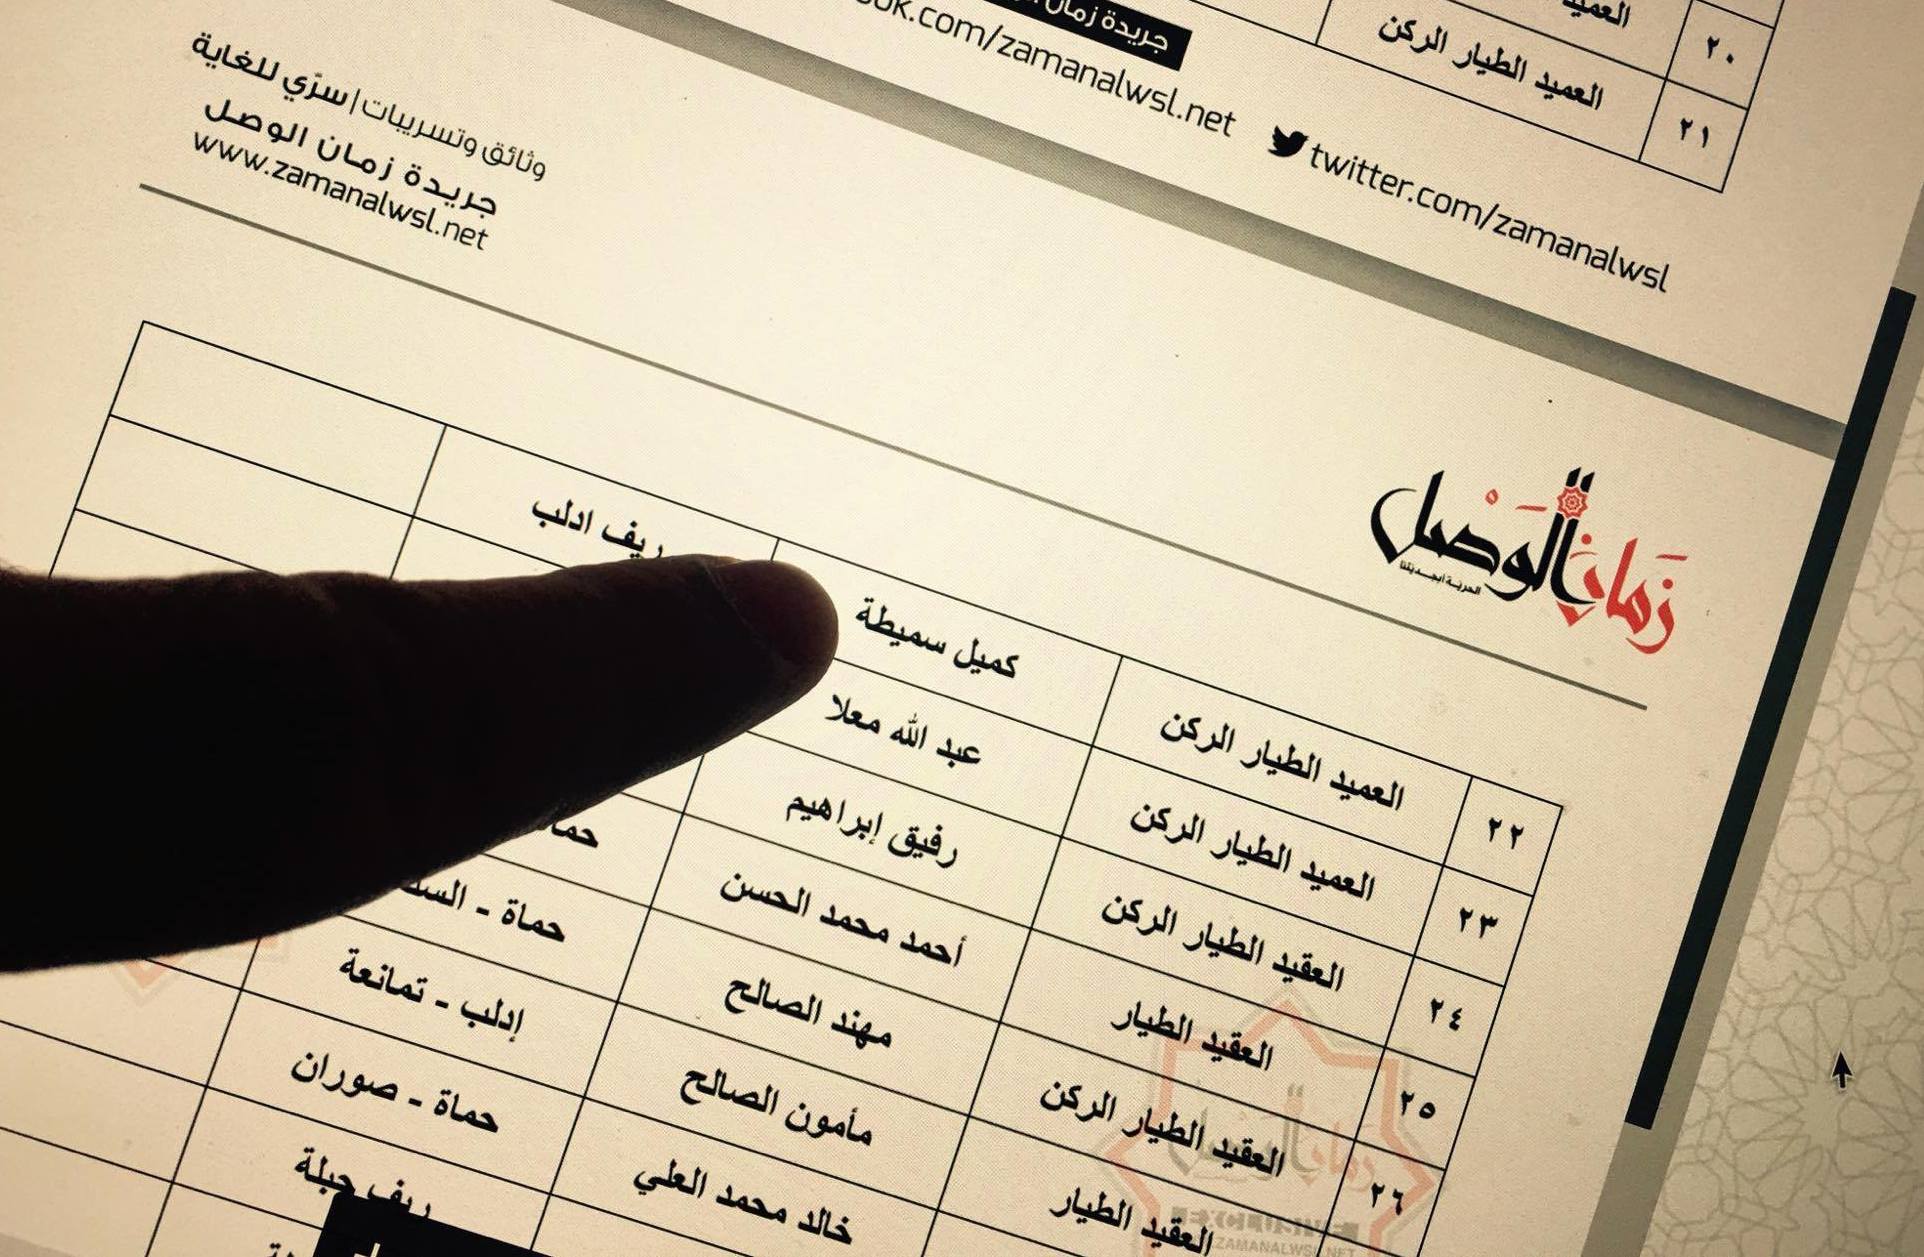 العميد
٢٠
العميد الطيار الركن
٢١
جريدة زمان
ok.com/zamanalwsl.net
twitter.com/zamanalwsl
وثائق وتسريبات | سرّي للغاية
جريدة زمان الوصل
www.zamanalwsl.net
زمان الوصل
الحرية أبجديتنا
٢٢ العميد الطيار الركن كميل سميطة ريف ادلب
٢٣ العميد الطيار الركن عبد الله معلا
٢٤ العقيد الطيار الركن رفيق إبراهيم
٢٥ العقيد الطيار أحمد محمد الحسن
٢٦ العقيد الطيار الركن مهند الصالح حماة -
العقيد الطيار مأمون الصالح إدلب - تمانعة
خالد محمد العلي حماة - صوران
ريف جبلة
زمان الوصل
ZAMANALWSL.NET